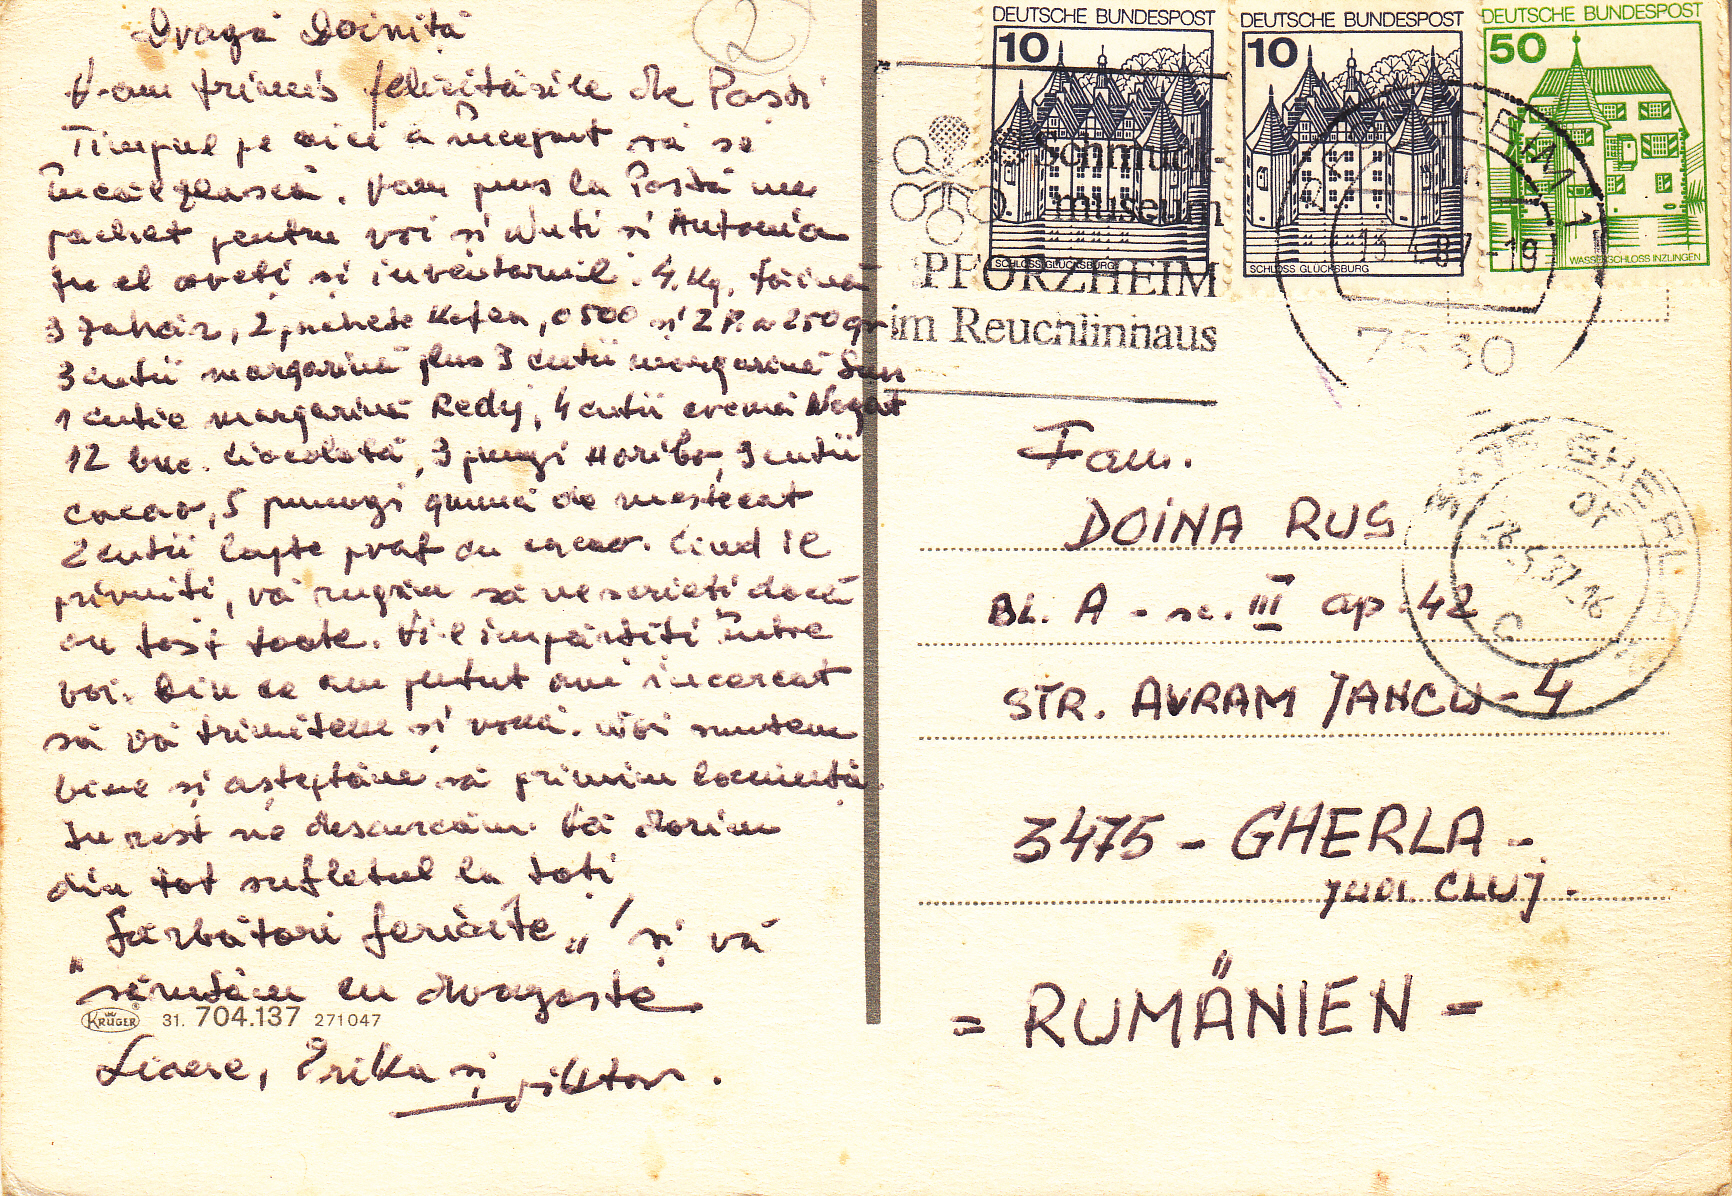 Dragă Doiniță
V-am trimis felicitările de Paști
Timpul pe aici a început să se
încălzească. V-am pus la Poștă un
pachet pentru voi și Nuti și Antonia
În el aveți și inventarul. 4 Kg. făină
3 zahăr, 2 pachete Kafea, 0 500 și 2 P. a 250 gr.
3 cutii margarină plus 3 cutii margarină San
1 cutie margarină Redy, 4 cutii cremă Nogat
12 buc. Ciocolată, 3 pungi Haribo, 3 cutii
cacao, 5 pungi gumă de mestecat
2 cutii lapte praf cu cacao. Cînd îl
primiți, vă rugăm să ne scrieți dacă
au fost toate. Vi-l împărțiți între
voi. Din ce am putut am încercat
să vă trimitem și vouă. Noi suntem
bine și așteptăm să primim locuință.
În rest ne descurcăm. Vă dorim
din tot sufletul la toți
„Sărbători fericite„! și vă
sărutăm cu dragoste
KRÜGER 31. 704.137 271047
Erika și Viktor.
2
DEUTSCHE BUNDESPOST
10
SCHLOSS GLÜCKSBURG
DEUTSCHE BUNDESPOST
10
SCHLOSS GLÜCKSBURG
DEUTSCHE BUNDESPOST
50
WASSERSCHLOSS INZLINGEN
Schmuck-
museum
PFORZHEIM
im Reuchlinhaus
13.4.87-19
7530
GHERLA
OF
Fam.
DOINA RUS
BL. A - sc. III ap. 42
STR. AVRAM IANCU-4
3475 - GHERLA -
jud. CLUJ -
= RUMÄNIEN =